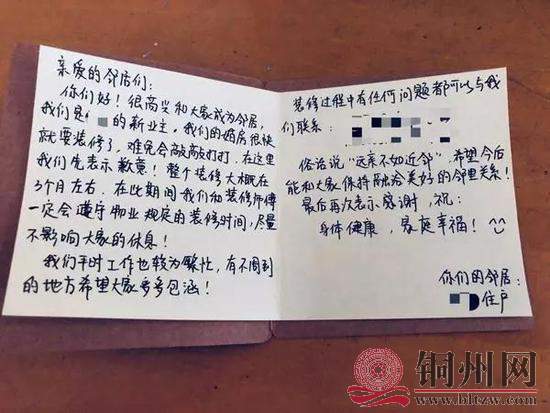 亲爱的邻居们:
你们好!很高兴和大家成为邻居,
我们是 的新业主,我们的婚房很快
就要装修了,难免会敲敲打打,在这里
我们先表示歉意!整个装修大概在
3个月左右,在此期间我们和装修师傅
一定会遵守物业规定的装修时间,尽量
不影响大家的休息!
我们平时工作也较为繁忙,有不周到
的地方希望大家多多包涵!
装修过程中有任何问题都可以与我
们联系:
俗话说“远亲不如近邻”,希望今后
能和大家保持融洽美好的邻里关系!
最后再次表示感谢,祝:
身体健康,家庭幸福!
你们的邻居:
住户
铜州网
www.bltzw.com